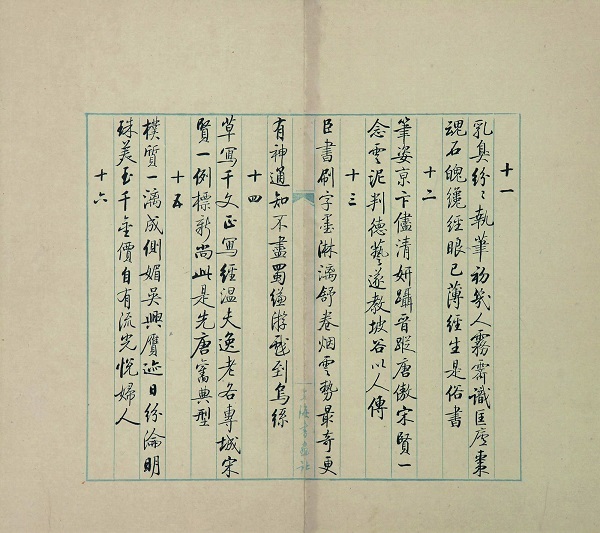 十一
乳臭紛〻執筆初幾人霧霽識匡廬棗
魂石魄纔經眼已薄經生是俗書
十二
筆姿京卞儘清妍躡晉蹤唐傲宋賢一
念雲泥判德藝遂教坡谷以人傳
十三
臣書刷字墨淋漓舒卷烟雲勢最奇更
上海書畫社
有神通知不盡蜀縑游戲到烏絲
十四
草寫千文正寫經溫夫逸老各專城宋
賢一例標新尚此是先唐舊典型
十五
樸質一漓成側媚吳興贗迹日紛淪明
珠美玉千金價自有流光悅婦人
十六